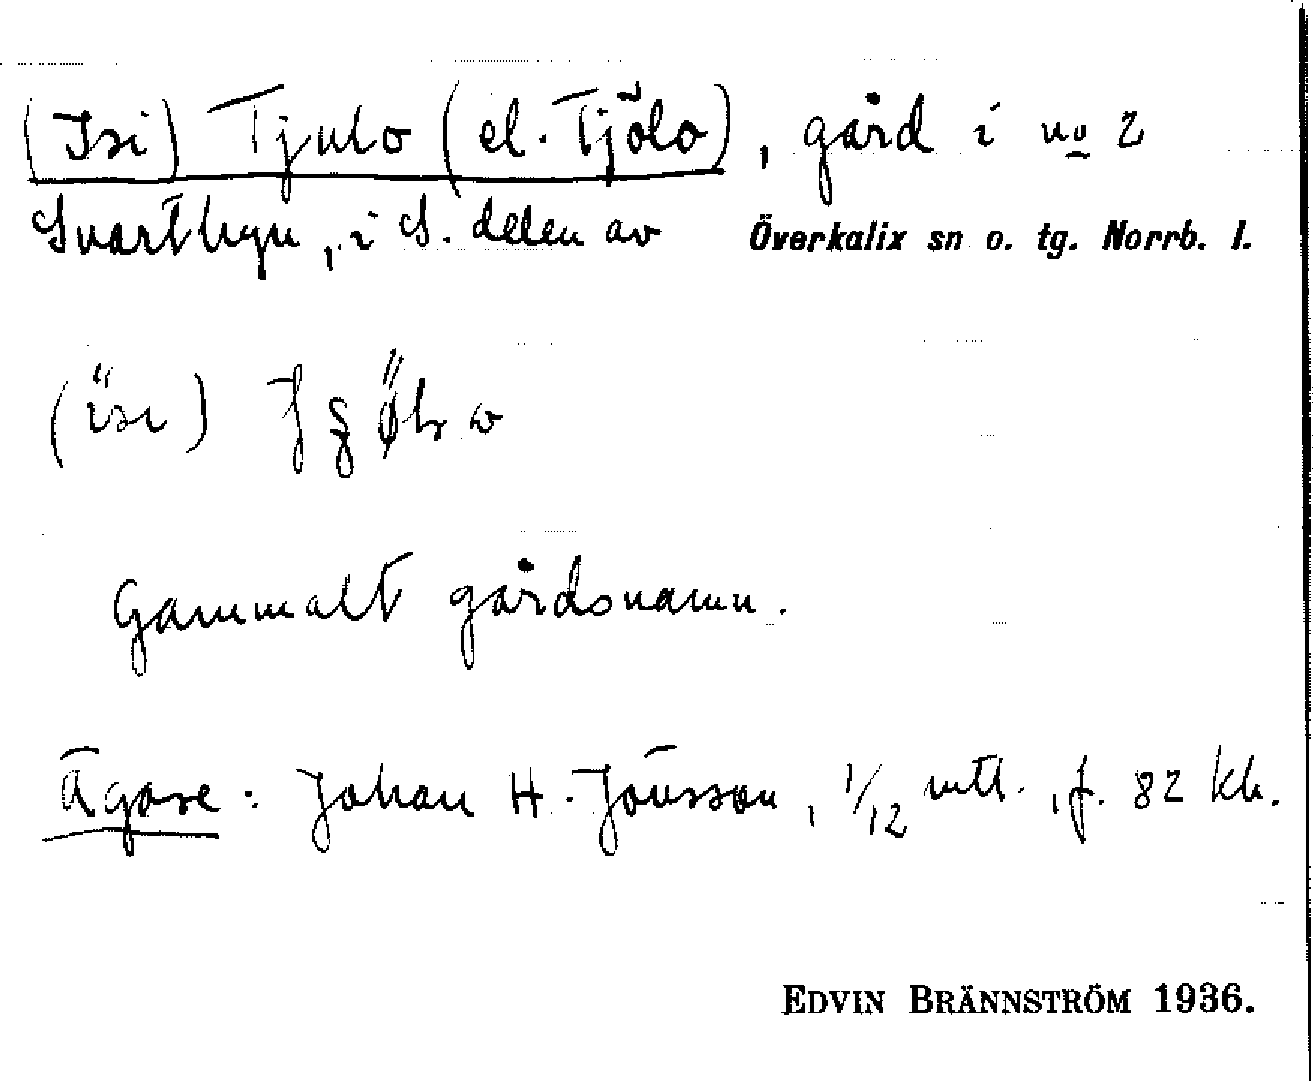 (Isi) Tjulo (el. Tjölo), gård i no 2
Svartbyn, i S. delen av Överkalix sn o. tg. Norrb. l.
Gammalt gårdsnamn.
Ägare: Johan H. Jönsson, 1/12 mtl., f. 82 kh.
EDVIN BRÄNNSTRÖM 1936.